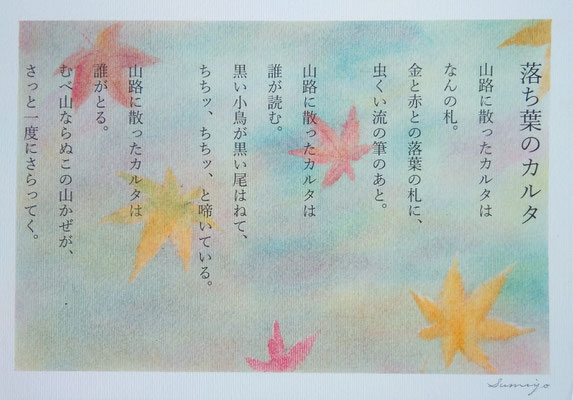 落ち葉のカルタ
山路に散ったカルタは
なんの札。
金と赤との落葉の札に、
虫くい流の筆のあと。
山路に散ったカルタは
誰が読む。
黒い小鳥が黒い尾はねて、
ちちッ、ちちッ、と啼いている。
山路に散ったカルタは
誰がとる。
むべ山ならぬこの山かぜが、
さっと一度にさらってく。
Sumiyo